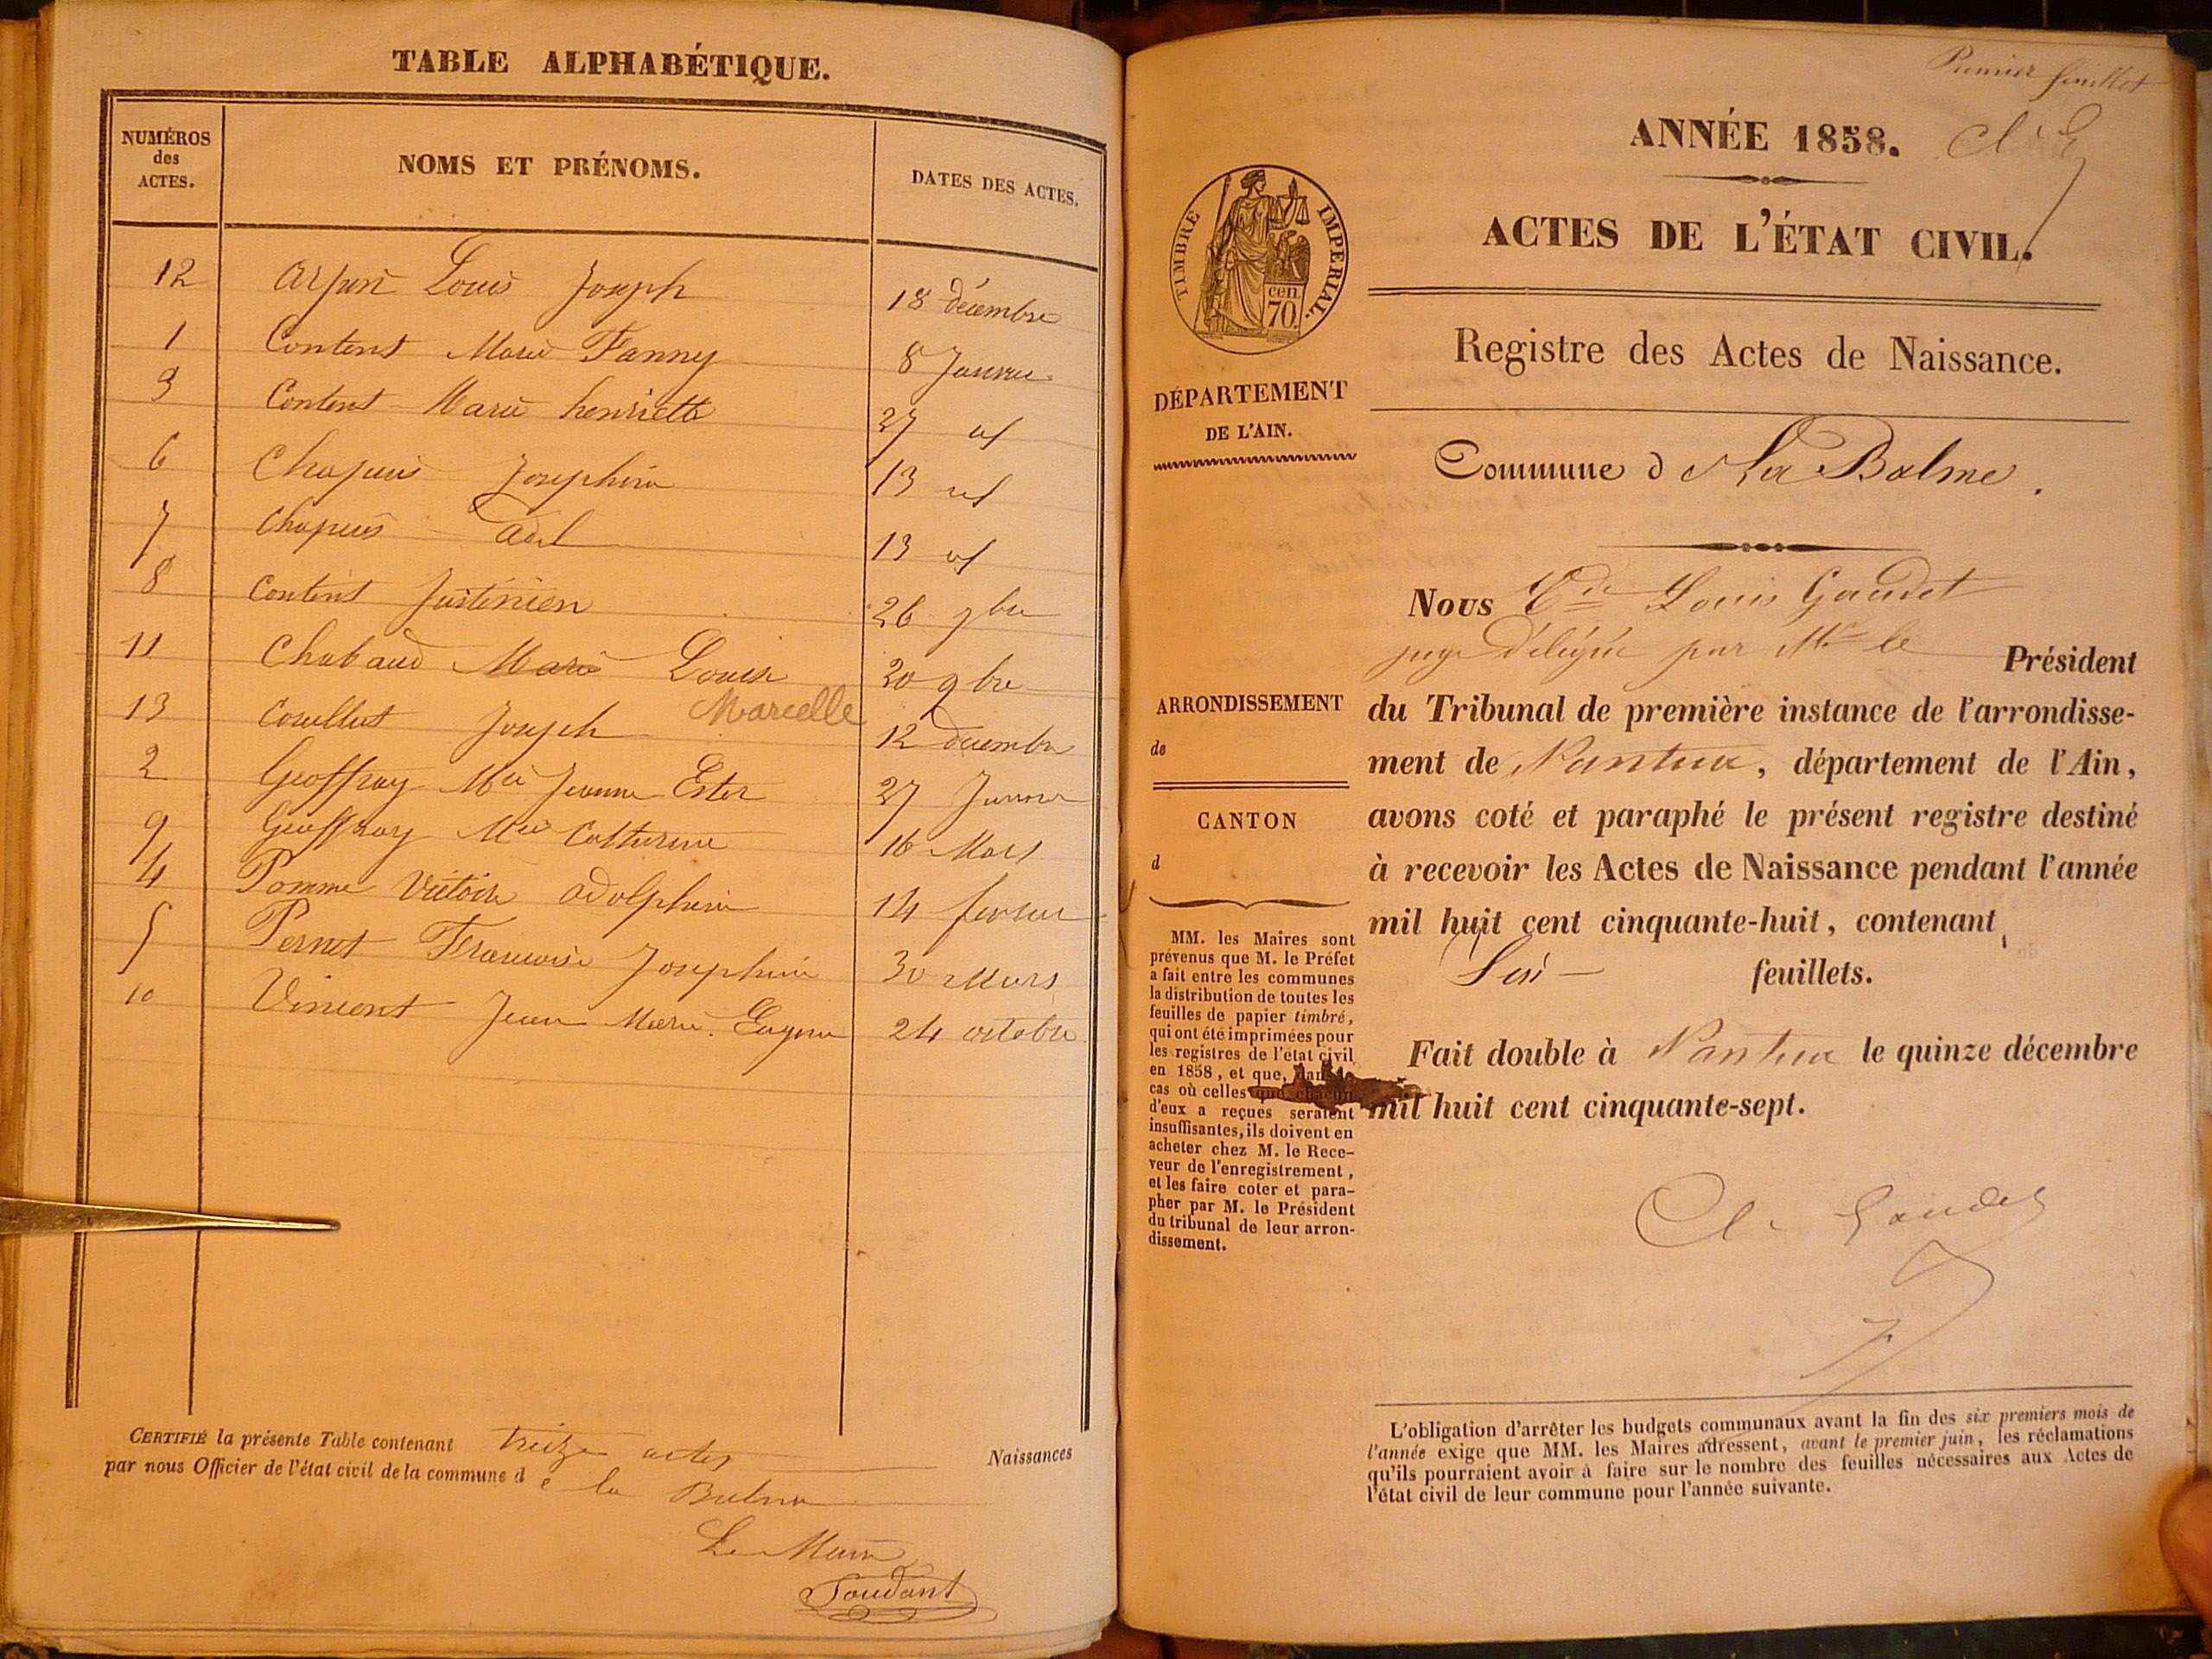 TABLE ALPHABÉTIQUE.
NUMÉROS
des
ACTES.
NOMS ET PRÉNOMS.
DATES DES ACTES.
12 Louis Joseph 18 décembre
1 Content Marie Fanny 8
3 Content Marie henriette 27
6 Chapuis Josephine 13
7 Chapuis 13
8 Content Justinien 26
11 Chabaud Marie Louise 20 9bre
Marcelle
13 Joseph 12 décembre
2 Geoffray Mie Jeanne Ester 27
9 Geoffray Mie Catherine 16 Mars
4 Pomme Victoire adolphine 14
5 Pernet Francoise Josephine 30 Mars
10 Vincent Jean Marie Eugene 24 octobre
CERTIFIÉ la présente Table contenant treize actes Naissances
par nous Officier de l'état civil de la commune d e la Balme
Le Maire
Premier feuillet
ANNÉE 1858.
ACTES DE L'ÉTAT CIVIL.
TIMBRE IMPERIAL.
cen.
70.
Registre des Actes de Naissance.
DÉPARTEMENT
DE L'AIN.
Commune d La Balme.
Nous Louis Gaudet
juge délégué par Mr le Président
du Tribunal de première instance de l'arrondisse-
ment de Nantua, département de l'Ain,
avons coté et paraphé le présent registre destiné
à recevoir les Actes de Naissance pendant l'année
mil huit cent cinquante-huit, contenant
feuillets.
Fait double à Nantua le quinze décembre
mil huit cent cinquante-sept.
Gaudet
ARRONDISSEMENT
de
CANTON
d
MM. les Maires sont
prévenus que M. le Préfet
a fait entre les communes
la distribution de toutes les
feuilles de papier timbré,
qui ont été imprimées pour
les registres de l'état civil
en 1858, et que,
cas où celles que chacun
d'eux a reçues seraient
insuffisantes, ils doivent en
acheter chez M. le Rece-
veur de l'enregistrement,
et les faire coter et para-
pher par M. le Président
du tribunal de leur arron-
dissement.
L'obligation d'arrêter les budgets communaux avant la fin des six premiers mois de
l'année exige que MM. les Maires adressent, avant le premier juin, les réclamations
qu'ils pourraient avoir à faire sur le nombre des feuilles nécessaires aux Actes de
l'état civil de leur commune pour l'année suivante.